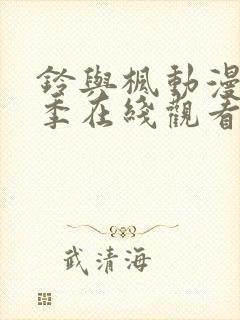 鈴與楓動漫
季在綫觀看
武清海